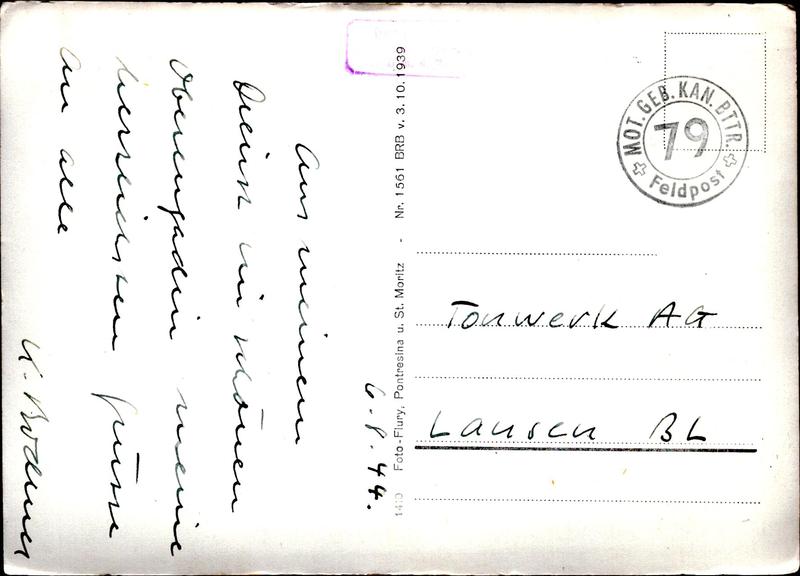 6.8.44.
Aus meinem
Dienst im schönen
Oberengadin meine
herzlichsten Grüsse
an alle
K. Bodmer
1410 Foto-Flury, Pontresina u. St. Moritz - Nr. 1561 BRB v. 3.10.1939
MOT. GEB. KAN. BTTR.
79
Feldpost
Tonwerk AG
Lausen BL